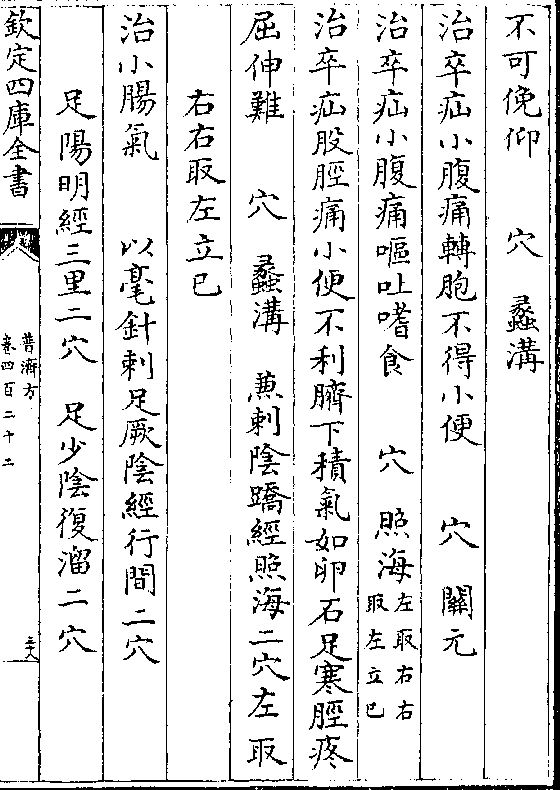 不可俛仰　穴　蠡溝
治卒疝小腹痛轉胞不得小便　穴　關元
治卒疝小腹痛嘔吐嗜食　穴　照海左取右右取左立已
治卒疝股脛痛小便不利臍下積氣如卵石足寒脛疼
屈伸難　穴　蠡溝　兼刺陰蹻經照海二穴左取
右右取左立已
治小腸氣　以毫針刺足厥陰經行間二穴
足陽明經三里二穴　足少陰復溜二穴
欽定四庫全書
普濟方
卷四百二十二